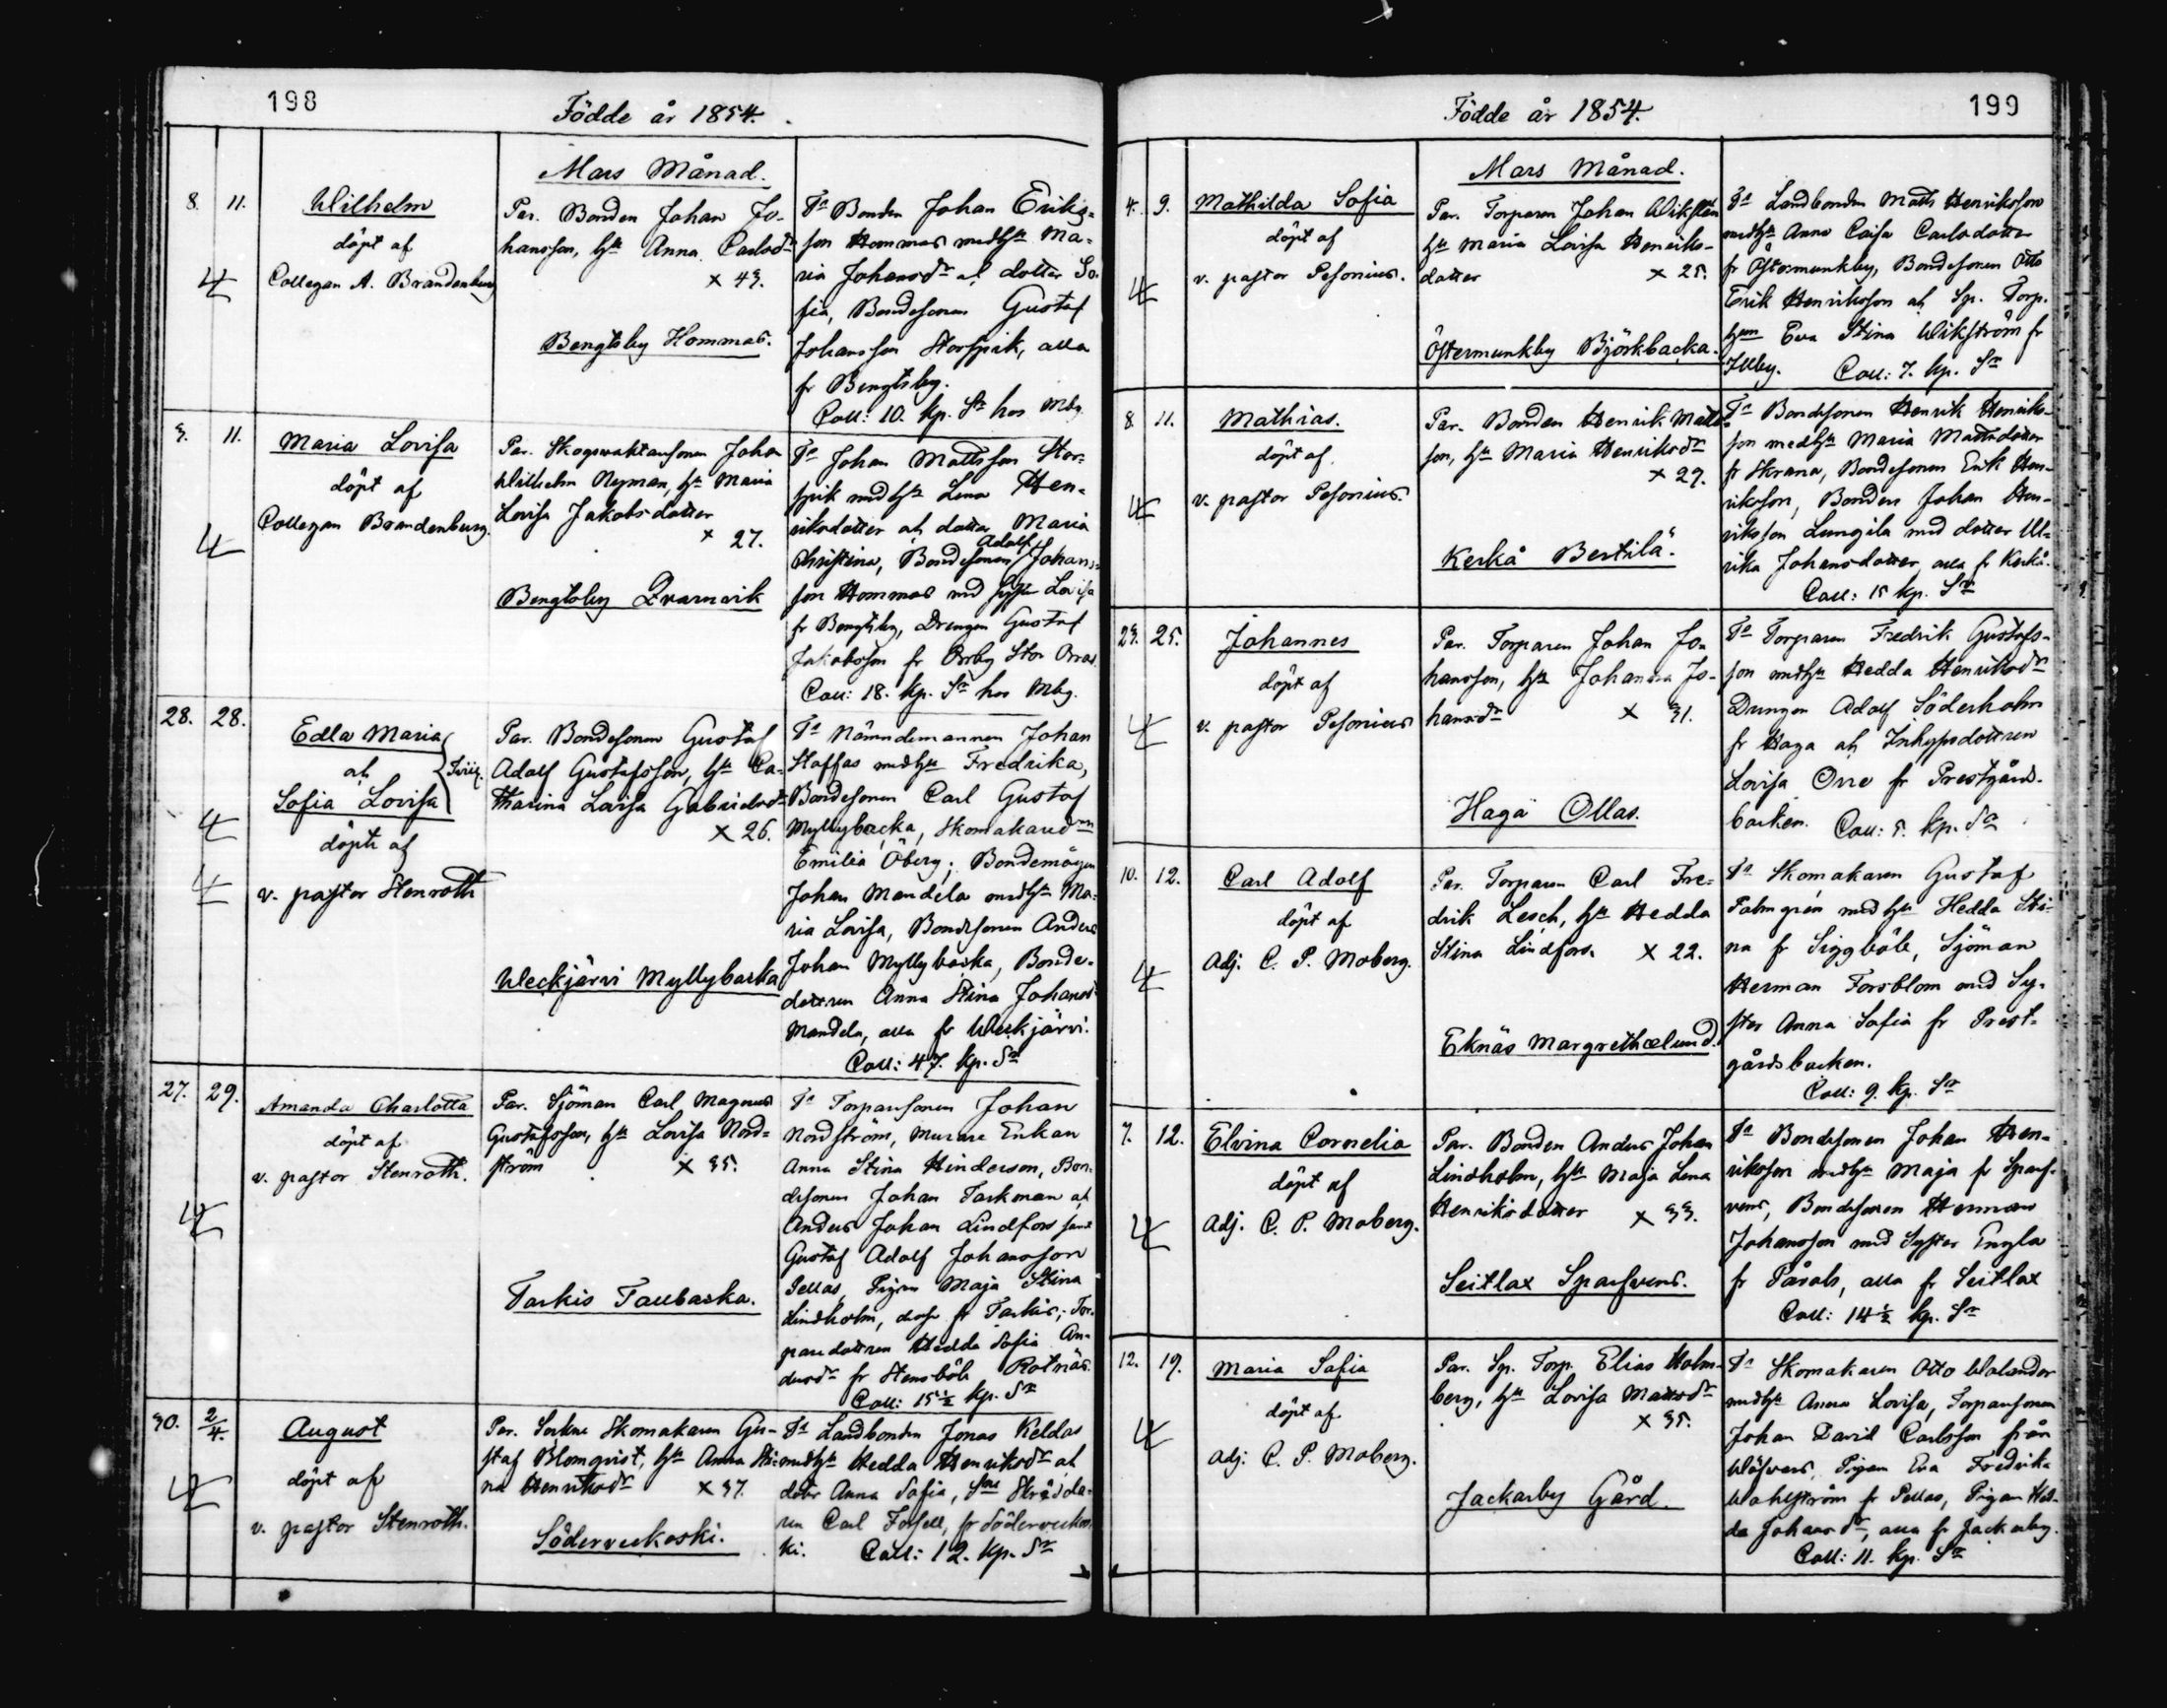 198
Födde år 1854.
Mars Månad.
8. 11.
Wilhelm
döpt af
Collegan A. Brandenburg
Par. Bonden Johan Jo-
hansson, hu Anna Carlsdr
x 43.
Bengtsby Hommas.
Fa Bonden Johan Eriks-
son Hommas med hu Ma-
ria Johansdr ah dotter So-
fia, Bondesonen Gustaf
Johansson Storpik, alla
fr Bengtsby.
Coll: 10. kp. Sr hos Mbg.
3. 11.
Maria Lovisa
döpt af
Collegan Brandenburg.
Par. Skogswaktaresonen Johan
Wilhelm Nyman, hu Maria
Lovisa Jakobsdotter
x 27.
Bengtsby Qvarnvik
Fa Johan Mattsson Stor-
pik med hu Lena Hen-
riksdotter ah dotter Maria
Christina, Bondesonen Adolf Johans-
son Hommas med hu Lovisa
fr Bengtsby, Drengen Gustaf
Jakobsson fr Orrby Stor Orras
Coll: 18. kp. Sr hos Mbg.
28. 28.
Edla Maria
ah
Sofia Lovisa
döpte af
v. pastor Stenroth
Par. Bondesonen Gustaf
Adolf Gustafsson, hu Ca-
tharina Lovisa Gabrielsdr
x 26.
Weckjärvi Myllybacka
Fa Nämndemannen Johan
Staffas med hu Fredrika,
Bondesonen Carl Gustaf
Myllybacka, Skomakare
Emilia Öberg; Bondemågen
Johan Mandela med hu Ma-
ria Lovisa, Bondesonen Anders
Johan Myllybacka, Bonde-
dottren Anna Stina Johansdr
Mandela, alla fr Weckjärvi.
Coll: 47. kp. Sr
27. 29.
Amanda Charlotta
döpt af
v. pastor Stenroth.
Par. Sjöman Carl Magnus
Gustafsson, hu Lovisa Nord-
ström x 35.
Tarkis Taubacka.
Fa Torparesonen Johan
Nordström, Murare Enkan
Anna Stina Hinderson, Bon-
desonen Johan Tarkman ah
Anders Johan Lindfors samt
Gustaf Adolf Johansson
Pellas, Pigan Maja Stina
Lindholm, desse fr Tarkis; Tor-
paredottren Hedda Sofia An-
dersdr fr Stensböle Rotnäs.
Coll: 15½ kp. Sr
30. 2/4.
August
döpt af
v. pastor Stenroth.
Par. Sockne Skomakaren Gu-
staf Blomqvist, hu Anna Sti-
na Henriksdr x 37.
Söderveckoski.
Fa Landbonden Jonas Keldas
med hu Hedda Henriksdr ah
dotr Anna Sofia, Sne Skrädda-
ren Carl Forsell, fr Södervekos-
ki. Coll: 12. kp. Sr
199
Födde år 1854.
Mars Månad.
4. 9.
Mathilda Sofia
döpt af
v. pastor Pesonius.
Par. Torparen Johan Wikström
hu Maria Lovisa Henriks-
dotter x 25.
Östermunkby Björkbacka.
Fa Landbonden Matts Henriksson
med hu Anna Caisa Carlsdotter
fr Östermunkby, Bondesonen Otto
Erik Henriksson ah Sp. Torp.
hun Eva Stina Wikström fr
Illby. Coll: 7. kp. Sr
8. 11.
Mathias.
döpt af
v. pastor Pesonius.
Par. Bonden Henrik Matts-
son, hu Maria Henriksdr
x 29.
Kerkå Bertilä.
Fa Bondesonen Henrik Henriks-
son med hu Maria Mattsdotter
fr Skrana, Bondesonen Erik Hen-
riksson, Bonden Johan Hen-
riksson Lungila med dotter Ul-
rika Johansdotter, alla fr Kerkå.
Coll: 15 kp. Sr
23. 25.
Johannes
döpt af
v. pastor Pesonius
Par. Torparen Johan Jo-
hansson, hu Johanna Jo-
hansdr x 31.
Haga Ollas.
Fa Torparen Fredrik Gustafs-
son med hu Hedda Henriksdr
Drengen Adolf Söderholm
fr Haga ah Inhysesdottren
Lovisa Orre fr Prestgårds-
backen. Coll: 5. kp. Sr
10. 12.
Carl Adolf
döpt af
Adj. C. P. Moberg.
Par. Torparen Carl Fre-
drik Lesch, hu Hedda
Stina Lindfors. x 22.
Eknäs Margrethælund.
Fa Skomakaren Gustaf
Palmgrén med hu Hedda Sti-
na fr Siggböle, Sjöman
Herman Forsblom med Sy-
ster Anna Sofia fr Prest-
gårdsbacken.
Coll: 9. kp. Sr
7. 12.
Elvina Cornelia
döpt af
Adj. C. P. Moberg.
Par. Bonden Anders Johan
Lindholm, hu Maja Lena
Henriksdotter x 33.
Seitlax Sparfvens.
Fa Bondesonen Johan Hen-
riksson med hu Maja fr Sparf-
vens, Bondesonen Herman
Johansson med Syster Engla
fr Påvals, alla fr Seitlax
Coll: 14½ kp. Sr
12. 19.
Maria Sofia
döpt af
Adj. C. P. Moberg.
Par. Sp. Torp. Elias Holm-
berg, hu Lovisa Mattsdr
x 35.
Jackarby Gård.
Fa Skomakaren Otto Walander
med hu Anna Lovisa, Torparesonen
Johan David Carlsson från
Wäfvars, Pigan Eva Fredrika
Wahlström fr Pellas, Pigan Hed-
da Johansdr, alla fr Jackarby.
Coll: 11. kp. Sr